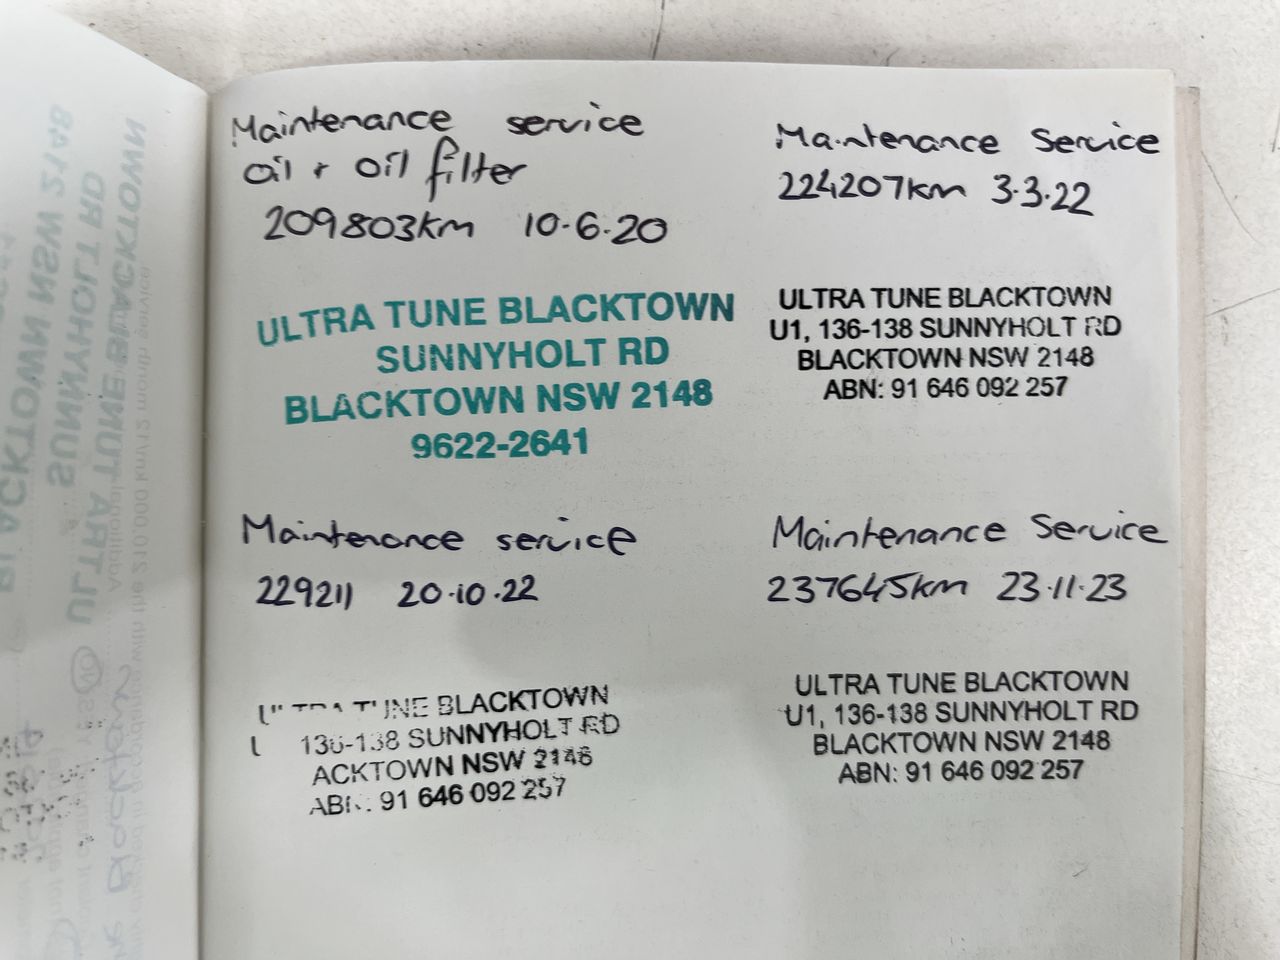 Maintenance service
oil + oil filter
209803km 10.6.20
ULTRA TUNE BLACKTOWN
SUNNYHOLT RD
BLACKTOWN NSW 2148
9622-2641
Maintenance Service
224207km 3.3.22
ULTRA TUNE BLACKTOWN
U1, 136-138 SUNNYHOLT RD
BLACKTOWN NSW 2148
ABN: 91 646 092 257
Maintenance service
229211 20.10.22
TUNE BLACKTOWN
136-138 SUNNYHOLT RD
ACKTOWN NSW 2148
ABN: 91 646 092 257
Maintenance Service
237645km 23.11.23
ULTRA TUNE BLACKTOWN
U1, 136-138 SUNNYHOLT RD
BLACKTOWN NSW 2148
ABN: 91 646 092 257